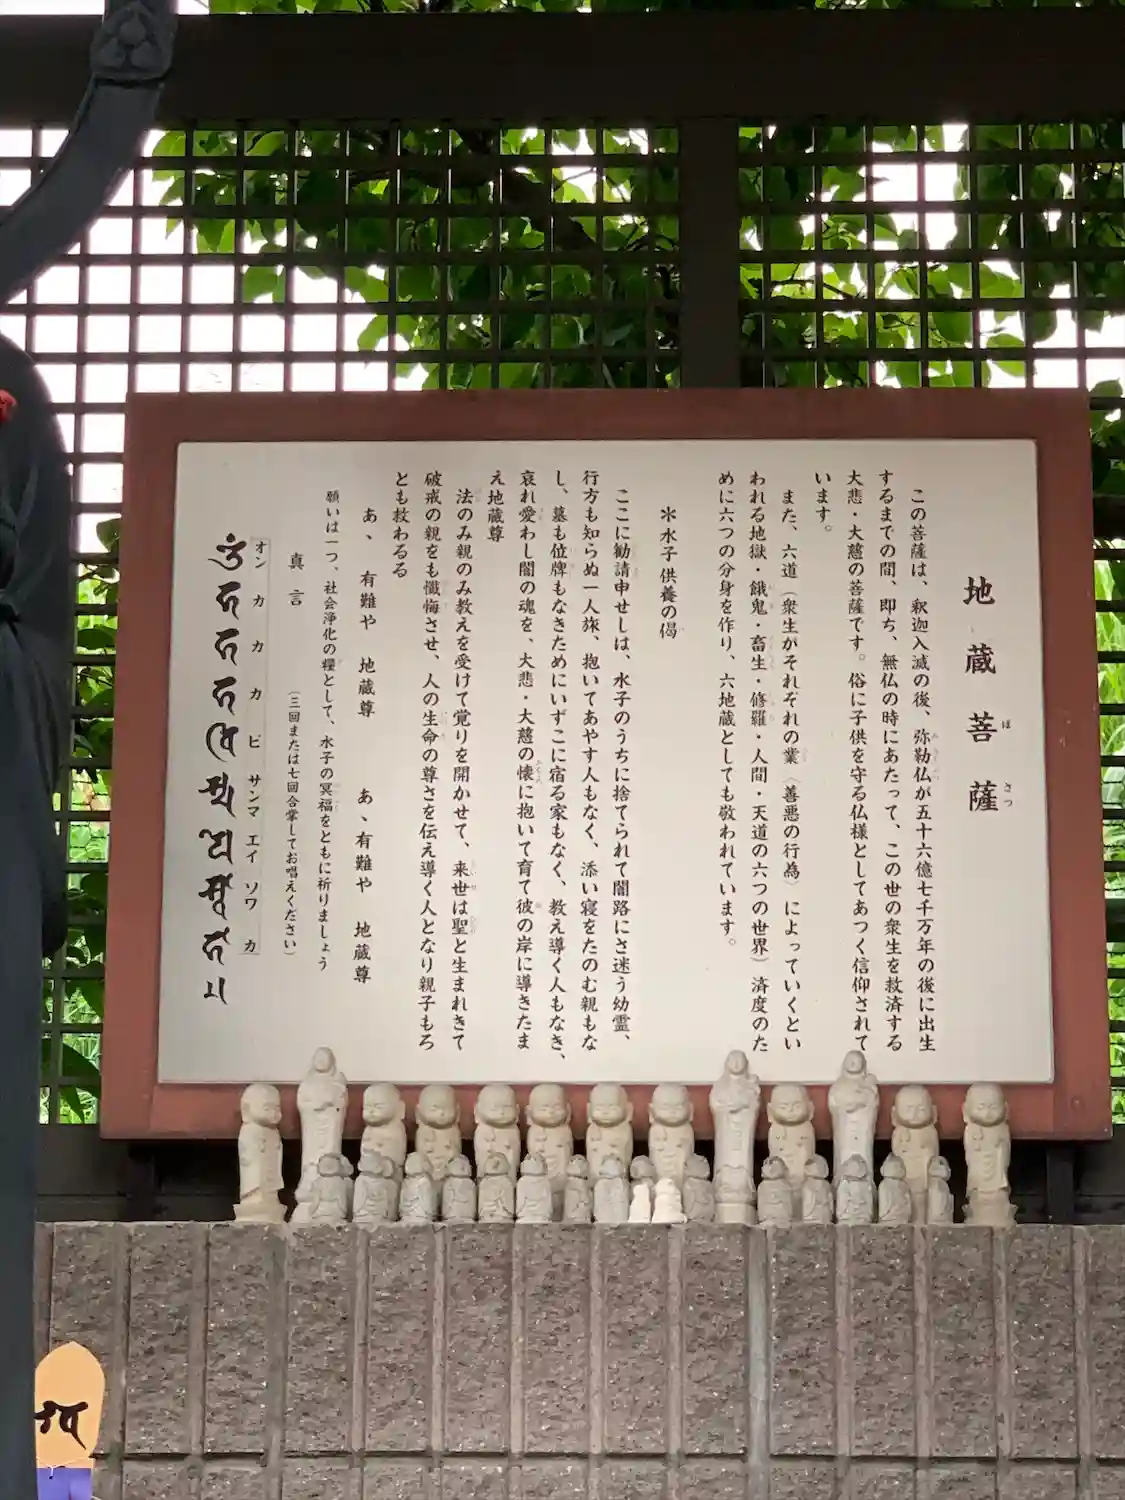 地蔵菩薩
この菩薩は、釈迦入滅の後、弥勒仏が五十六億七千万年の後に出生
するまでの間、即ち、無仏の時にあたって、この世の衆生を救済する
大悲・大慈の菩薩です。俗に子供を守る仏様としてあつく信仰されて
います。
また、六道（衆生がそれぞれの業（善悪の行為）によっていくとい
われる地獄・餓鬼・畜生・修羅・人間・天道の六つの世界）済度のた
めに六つの分身を作り、六地蔵としても敬われています。
＊水子供養の偈
ここに勧請申せしは、水子のうちに捨てられて闇路にさ迷う幼霊、
行方も知らぬ一人旅、抱いてあやす人もなく、添い寝をたのむ親もな
し、墓も位牌もなきためにいずこに宿る家もなく、教え導く人もなき、
哀れ愛わし闇の魂を、大悲・大慈の懐に抱いて育て彼の岸に導きたま
え地蔵尊
法のみ親のみ教えを受けて覚りを開かせて、来世は聖と生まれきて
破戒の親をも懺悔させ、人の生命の尊さを伝え導く人となり親子もろ
とも救わるる
あ、有難や 地蔵尊 あ、有難や 地蔵尊
願いは一つ、社会浄化の糧として、水子の冥福をともに祈りましょう
真言 （三回または七回合掌してお唱えください）
オン カ カ カ ビ サンマ エイ ソワ カ